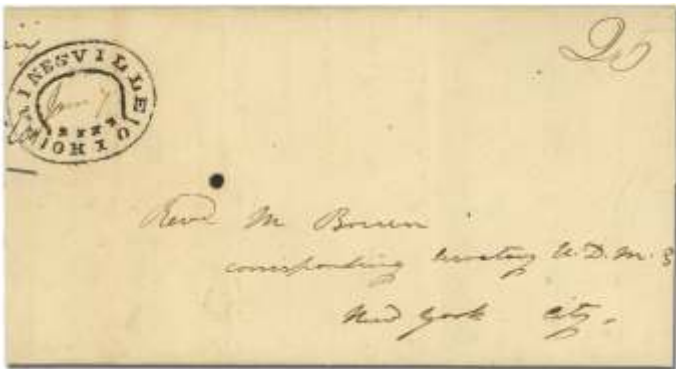 AINESVILLE OHIO
Revd M Bruen
corresponding secretary U.D.M.S
New York City.